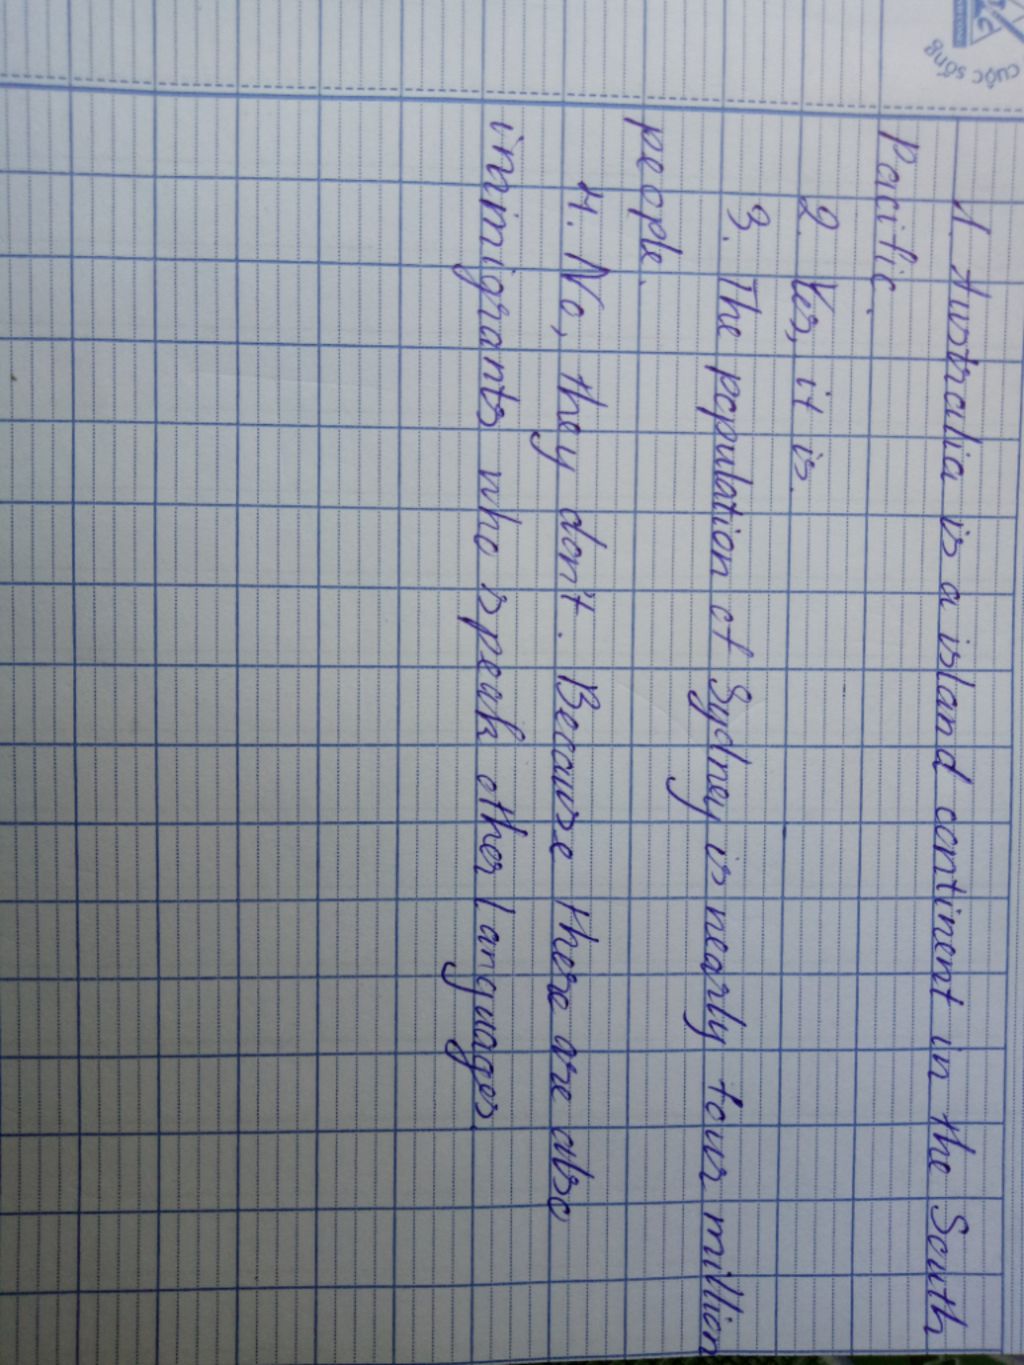 cuộc sống
1. Australia is a island continent in the South
Pacific.
2. Yes, it is.
3. The population of Sydney is nearly four million
people.
4. No, they don't. Because there are also
immigrants who speak other languages.